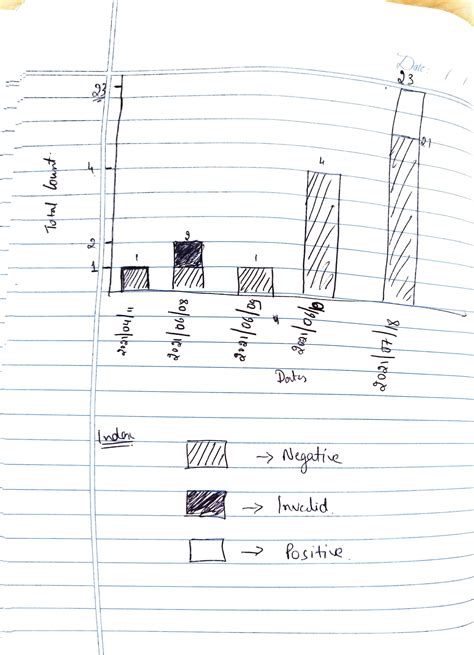 Date:
23
23
21
Total Count
4
4
2
2
1
1
1
2021/04/11
2021/06/08
2021/06/09
2021/07/18
Dates
Index
→ Negative
→ Invalid.
→ Positive.